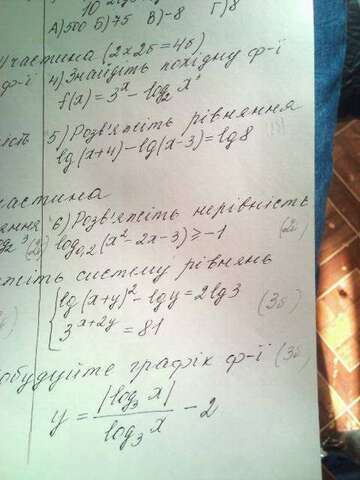 А) 500 Б) 75 В) -8 Г) 8
частина (2х2б = 4б)
ф-ї 4) Знайдіть похідну ф-ї
f(x) = 3^x - log₂ x³
5) Розв'яжіть рівняння
lg(x+4) - lg(x-3) = lg8
частина
6) Розв'яжіть нерівність
log₀,₂ (x² - 2x - 3) ≥ -1 (2б)
систему рівнянь
{ lg(x+y)² - lgy = 2lg3 (3б)
3^(x+2y) = 81
обудуйте графік ф-ї (3б)
y = |log₃ x| / log₃ x - 2